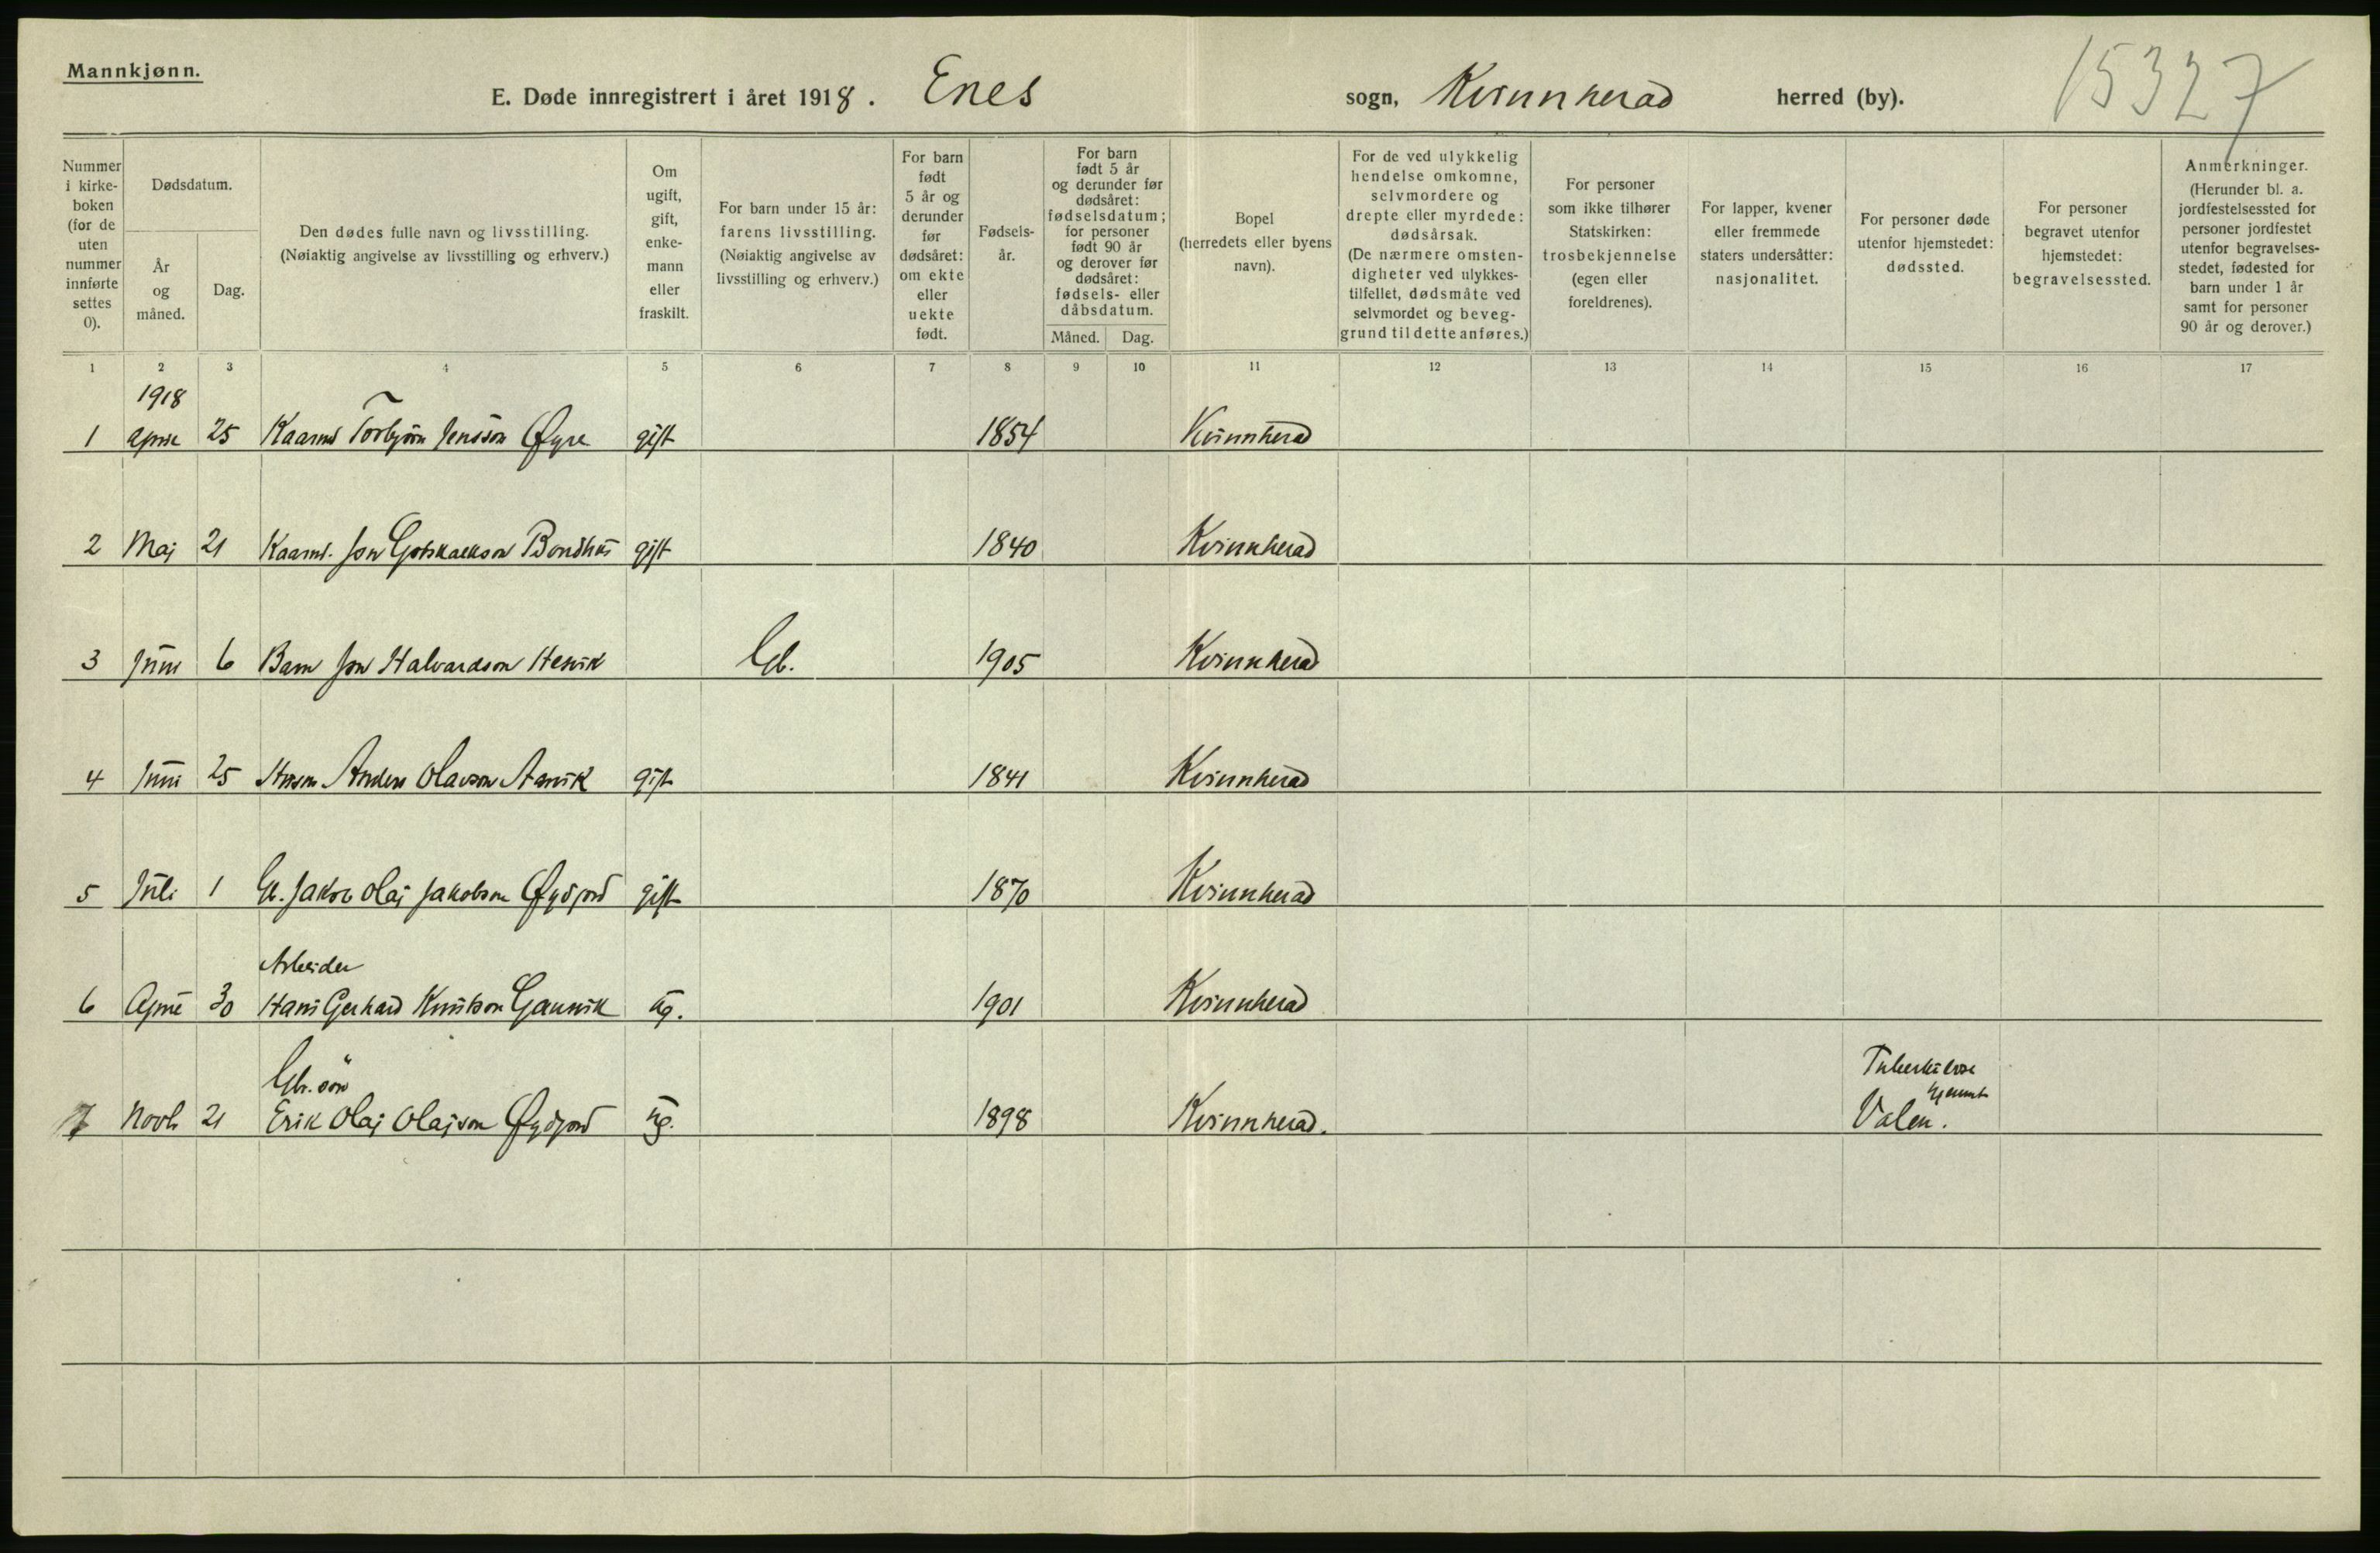 Mannkjønn.
E. Døde innregistrert i året 1918. Enes sogn, Kvinnherad herred (by).
15327
Nummer i kirke-boken (for de uten nummer innførte settes 0).
Dødsdatum.
År og måned.
Dag.
Den dødes fulle navn og livsstilling.
(Nøiaktig angivelse av livsstilling og erhverv.)
Om ugift, gift, enke-mann eller fraskilt.
For barn under 15 år: farens livsstilling.
(Nøiaktig angivelse av livsstilling og erhverv.)
For barn født 5 år og derunder før dødsåret: om ekte eller uekte født.
Fødsels-år.
For barn født 5 år og derunder før dødsåret: fødselsdatum; for personer født 90 år og derover før dødsåret: fødsels- eller dåbsdatum.
Måned. Dag.
Bopel (herredets eller byens navn).
For de ved ulykkelig hendelse omkomne, selvmordere og drepte eller myrdede: dødsårsak.
(De nærmere omsten-digheter ved ulykkes-tilfellet, dødsmåte ved selvmordet og beveg-grund til dette anføres.)
For personer som ikke tilhører Statskirken: trosbekjennelse (egen eller foreldrenes).
For lapper, kvener eller fremmede staters undersåtter: nasjonalitet.
For personer døde utenfor hjemstedet: dødssted.
For personer begravet utenfor hjemstedet: begravelsessted.
Anmerkninger.
(Herunder bl. a. jordfestelsessted for personer jordfestet utenfor begravelses-stedet, fødested for barn under 1 år samt for personer 90 år og derover.)
1 2 3 4 5 6 7 8 9 10 11 12 13 14 15 16 17
1918
1 25 Kaarm Torbjörn Jensson Øyre gift 1854 Kvinnherad
2 Mai 21 Kaarm. Jon Gotskalkson Bondhus gift 1840 Kvinnherad
3 Juni 6 Barn Jon Halvardson Henik Gb. 1905 Kvinnherad
4 Juni 25 Anders Olavson gift 1841 Kvinnherad
5 Juli 1 Gb. Jakob Olai Jakobson Øydfjord gift 1870 Kvinnherad
Arbeider
6 30 Hans Gerhard Knutson ug. 1901 Kvinnherad
Gbr. sön Tuberkulose
hjemmet
7 Novb 21 Erik Olai Olaison Øydfjord ug. 1898 Kvinnherad. Valen.